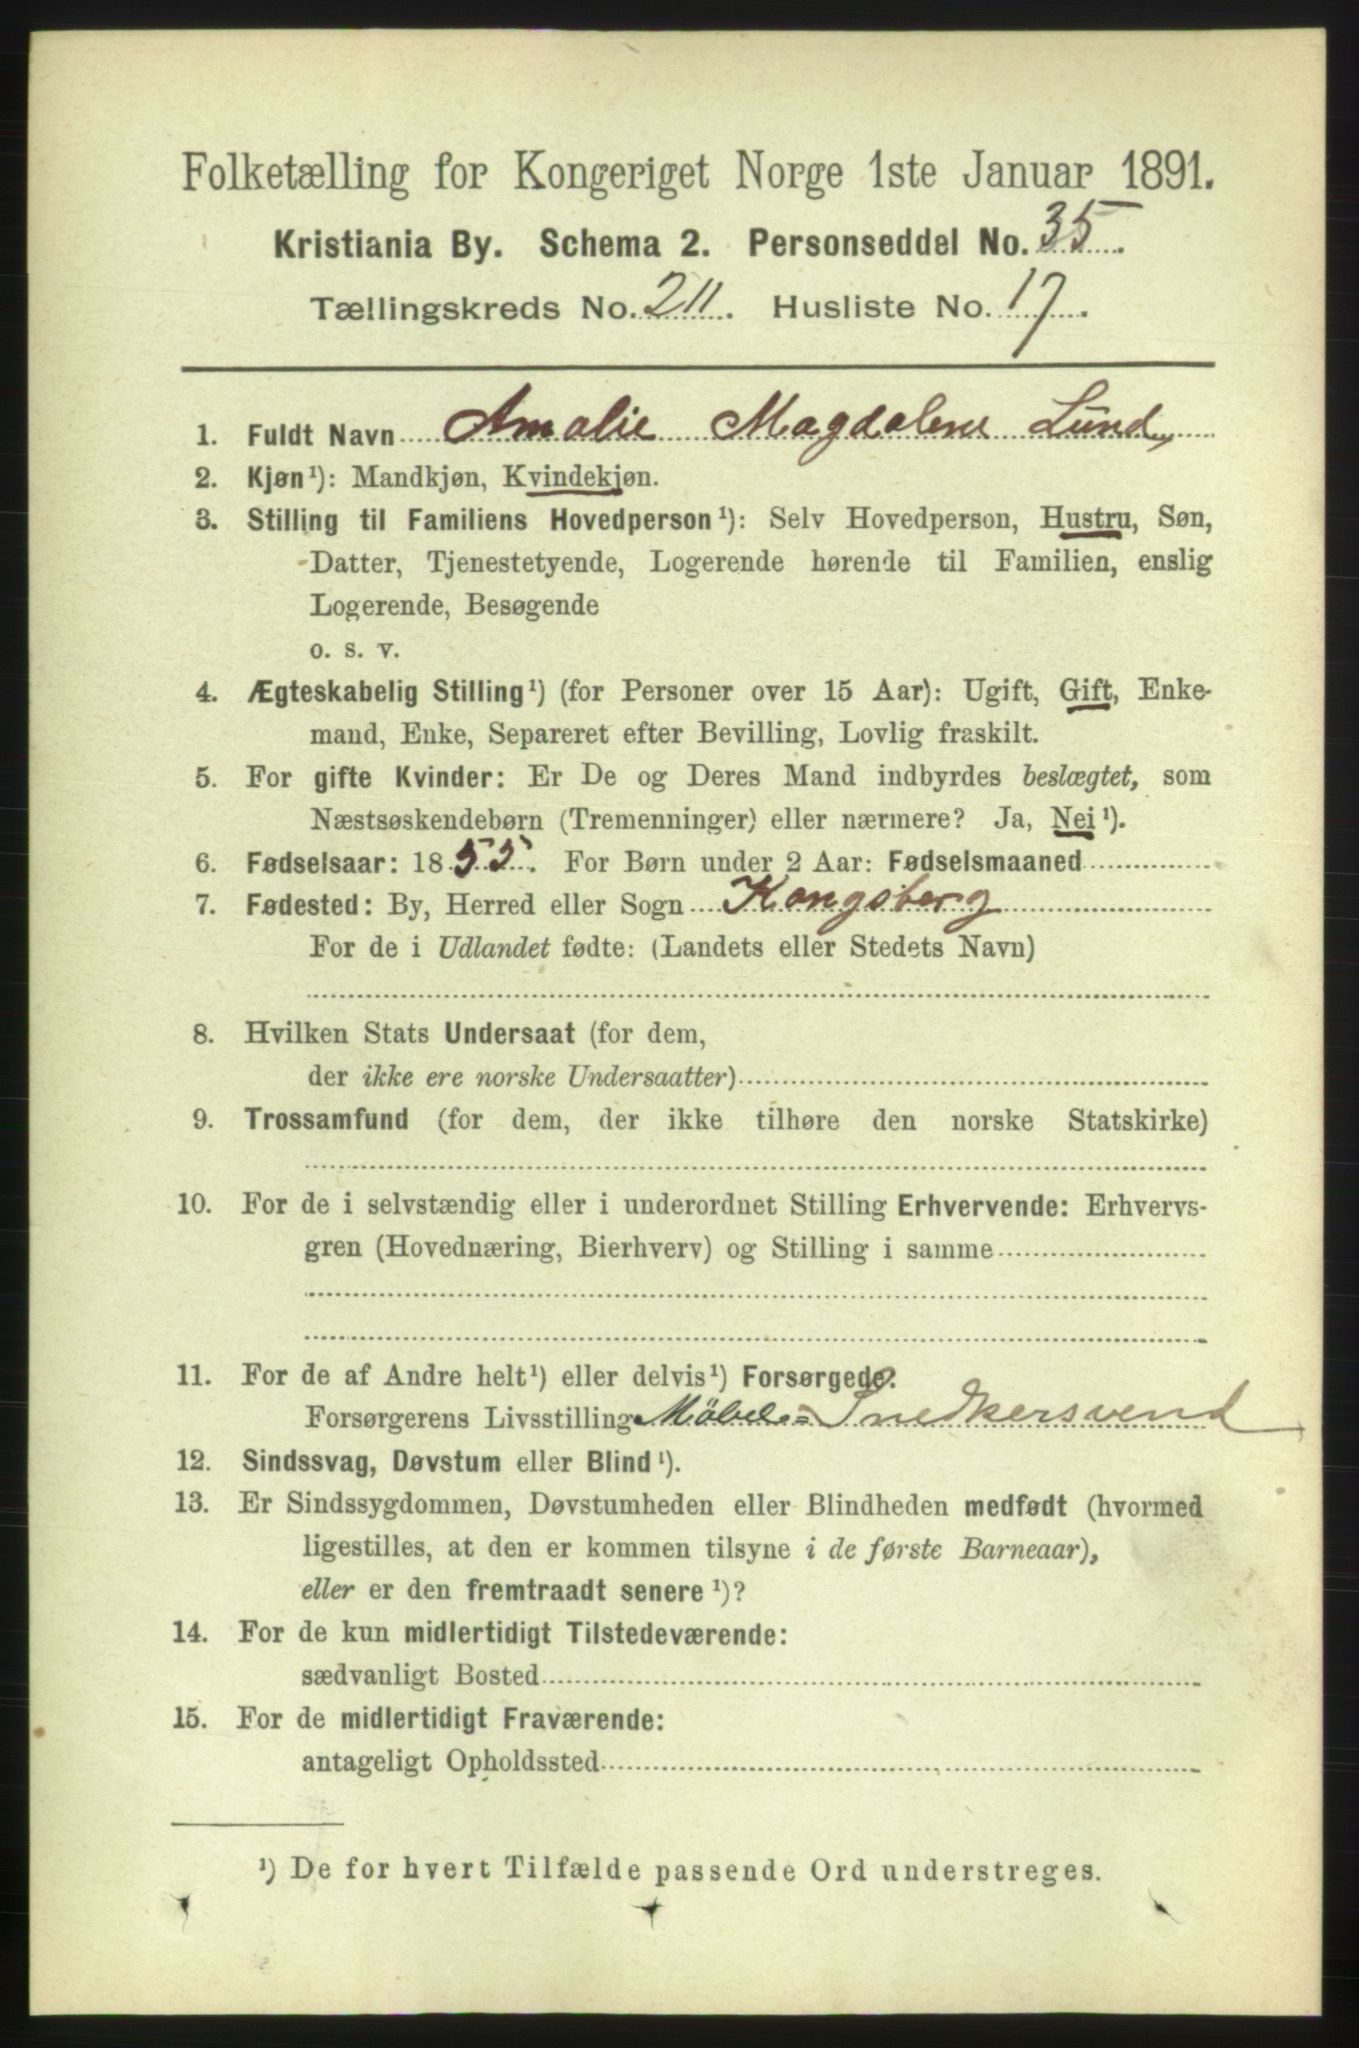 Folketælling for Kongeriget Norge 1ste Januar 1891.
Kristiania By. Schema 2. Personseddel No. 35.
Tællingskreds No. 211. Husliste No. 17.
1. Fuldt Navn Amalie Magdalene Lund,
2. Kjøn¹): Mandkjøn, Kvindekjøn.
3. Stilling til Familiens Hovedperson¹): Selv Hovedperson, Hustru, Søn,
Datter, Tjenestetyende, Logerende hørende til Familien, enslig
Logerende, Besøgende
o. s. v.
4. Ægteskabelig Stilling¹) (for Personer over 15 Aar): Ugift, Gift, Enke-
mand, Enke, Separeret efter Bevilling, Lovlig fraskilt.
5. For gifte Kvinder: Er De og Deres Mand indbyrdes beslægtet, som
Næstsøskendebørn (Tremenninger) eller nærmere? Ja, Nei¹).
6. Fødselsaar: 1855. For Børn under 2 Aar: Fødselsmaaned
7. Fødested: By, Herred eller Sogn Kongsberg
For de i Udlandet fødte: (Landets eller Stedets Navn)
8. Hvilken Stats Undersaat (for dem,
der ikke ere norske Undersaatter)
9. Trossamfund (for dem, der ikke tilhøre den norske Statskirke)
10. For de i selvstændig eller i underordnet Stilling Erhvervende: Erhvervs-
gren (Hovednæring, Bierhverv) og Stilling i samme
11. For de af Andre helt¹) eller delvis¹) Forsørgede.
Forsørgerens Livsstilling Möbel=Snedkersvend
12. Sindssvag, Døvstum eller Blind¹).
13. Er Sindssygdommen, Døvstumheden eller Blindheden medfødt (hvormed
ligestilles, at den er kommen tilsyne i de første Barneaar),
eller er den fremtraadt senere¹)?
14. For de kun midlertidigt Tilstedeværende:
sædvanligt Bosted
15. For de midlertidigt Fraværende:
antageligt Opholdssted
¹) De for hvert Tilfælde passende Ord understreges.